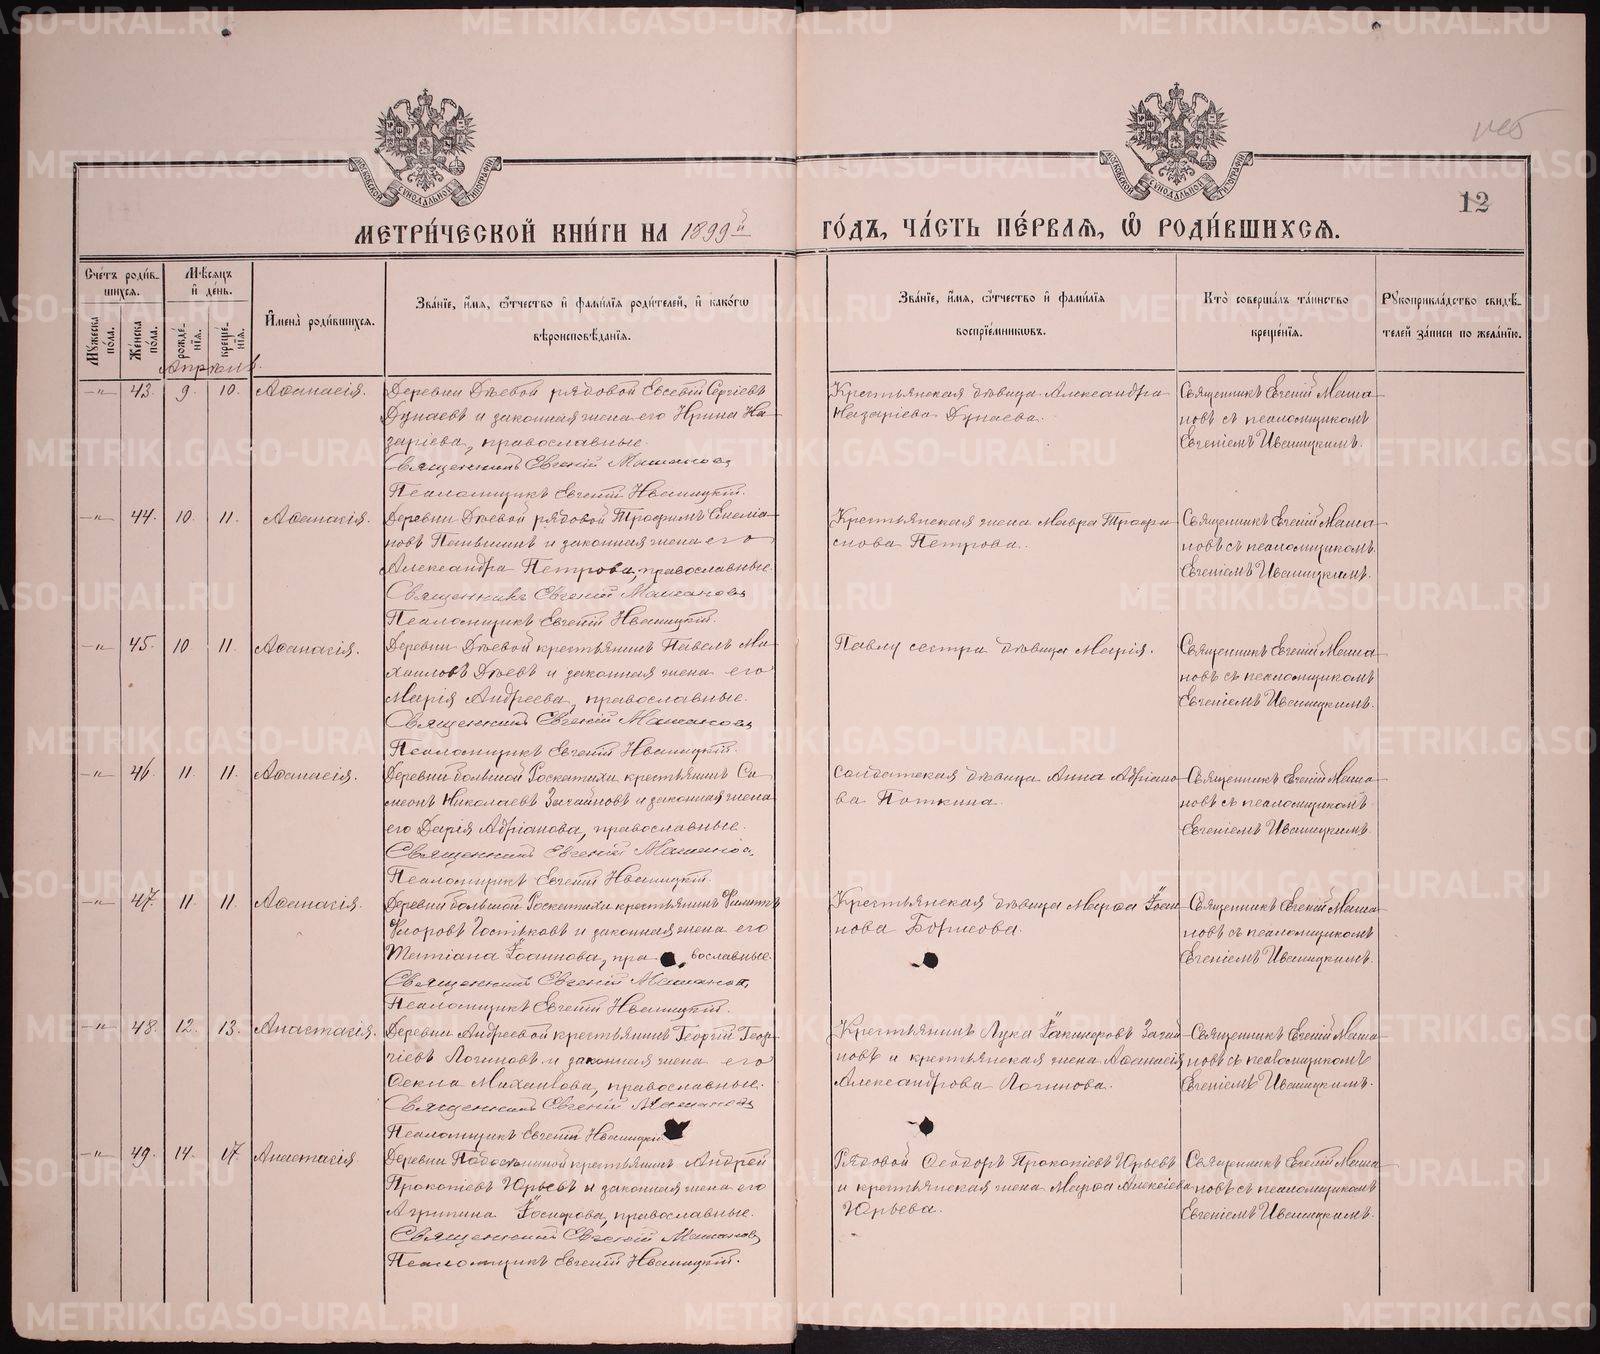 МЕТРИ́ЧЕСКОЙ КНИ́ГИ НА 1899й ГО́ДЪ, ЧА́СТЬ ПЕ́РВАЯ, Ѡ҆ РОДИ́ВШИХСЯ.
12
МОСКОВСКОЙ СИНОДАЛЬНОЙ ТИПОГРАФІИ
МОСКОВСКОЙ СИНОДАЛЬНОЙ ТИПОГРАФІИ
Сче́тъ роди́вшихся.
Мꙋ́жеска по́ла.
Же́нска по́ла.
Мѣ́сяцъ и҆ де́нь.
рожде́нїя.
креще́нїя.
И҆мена̀ роди́вшихся.
Зва́нїе, и҆́мя, ѻ҆́тчество и҆ фами́лїя роди́телей, и҆ како́гѡ вѣроисповѣ́данїя.
Зва́нїе, и҆́мя, ѻ҆́тчество и҆ фами́лїя воспрїе́мникѡвъ.
Кто̀ соверша́лъ та́инство креще́нїя.
Рꙋкоприкла́дство свидѣ́телей за́писи по жела́нїю.
Апрѣль.
-"- 43. 9. 10. Аѳанасія.
Деревни Дѣевой рядовой Евсевій Сергіевъ
Дунаевъ и законная жена его Ирина На-
заріева, православные.
Священникъ Евгеній Машановъ
Псаломщикъ Евгеній Ивашицкій.
Крестьянская дѣвица Александра
Назаріева Дунаева.
Священникъ Евгеній Маша-
новъ съ псаломщикомъ
Евгеніемъ Ивашицкимъ.
-"- 44. 10. 11. Аѳанасія.
Деревни Дѣевой рядовой Трофимъ Емеліа-
новъ Паньшинъ и законная жена его
Александра Петрова, православные.
Священникъ Евгеній Машановъ
Псаломщикъ Евгеній Ивашицкій.
Крестьянская жена Мавра Трофи-
мова Петрова.
Священникъ Евгеній Маша-
новъ съ псаломщикомъ
Евгеніемъ Ивашицкимъ.
-"- 45. 10 11. Аѳанасія.
Деревни Дѣевой крестьянинъ Павелъ Ми-
хаиловъ Дѣевъ и законная жена его
Марія Андреева, православные.
Священникъ Евгеній Машановъ
Псаломщикъ Евгеній Ивашицкій.
Павлу сестра дѣвица Марія.
Священникъ Евгеній Маша-
новъ съ псаломщикомъ
Евгеніемъ Ивашицкимъ.
-"- 46. 11. 11. Аѳанасія.
Деревни большой Роскатихи крестьянинъ Си-
меонъ Николаевъ Зачайновъ и законная жена
его Дарія Адріанова, православные.
Священникъ Евгеній Машановъ
Псаломщикъ Евгеній Ивашицкій.
Солдатская дѣвица Анна Адріано-
ва Поткина.
Священникъ Евгеній Маша-
новъ съ псаломщикомъ
Евгеніемъ Ивашицкимъ.
-"- 47. 11. 11. Аѳанасія.
Деревни большой Роскатихи крестьянинъ Филиппъ
Флоровъ Гостѣковъ и законная жена его
Татіана Іоаннова, православные.
Священникъ Евгеній Машановъ
Псаломщикъ Евгеній Ивашицкій.
Крестьянская дѣвица Марѳа Іоан-
нова Борисова.
Священникъ Евгеній Маша-
новъ съ псаломщикомъ
Евгеніемъ Ивашицкимъ.
-"- 48. 12. 13. Анастасія.
Деревни Андреевой крестьянинъ Георгій Геор-
гіевъ Логиновъ и законная жена его
Ѳекла Михаилова, православные.
Священникъ Евгеній Машановъ
Псаломщикъ Евгеній Ивашицкій
Крестьянинъ Лука Іакинѳовъ Зачай-
новъ и крестьянская жена Аѳанасія
Александрова Логинова.
Священникъ Евгеній Маша-
новъ съ псаломщикомъ
Евгеніемъ Ивашицкимъ.
-"- 49. 14. 17 Анастасія.
крестьянинъ Андрей
Прокопіевъ Юрьевъ и законная жена его
Агрипина Іосифова, православные.
Священникъ Евгеній Машановъ
Псаломщикъ Евгеній Ивашицкій.
Рядовой Ѳеодоръ Прокопіевъ Юрьевъ
и крестьянская жена Марѳа Алексіева
Юрьева.
Священникъ Евгеній Маша-
новъ съ псаломщикомъ
Евгеніемъ Ивашицкимъ.
METRIKI.GASO-URAL.RU